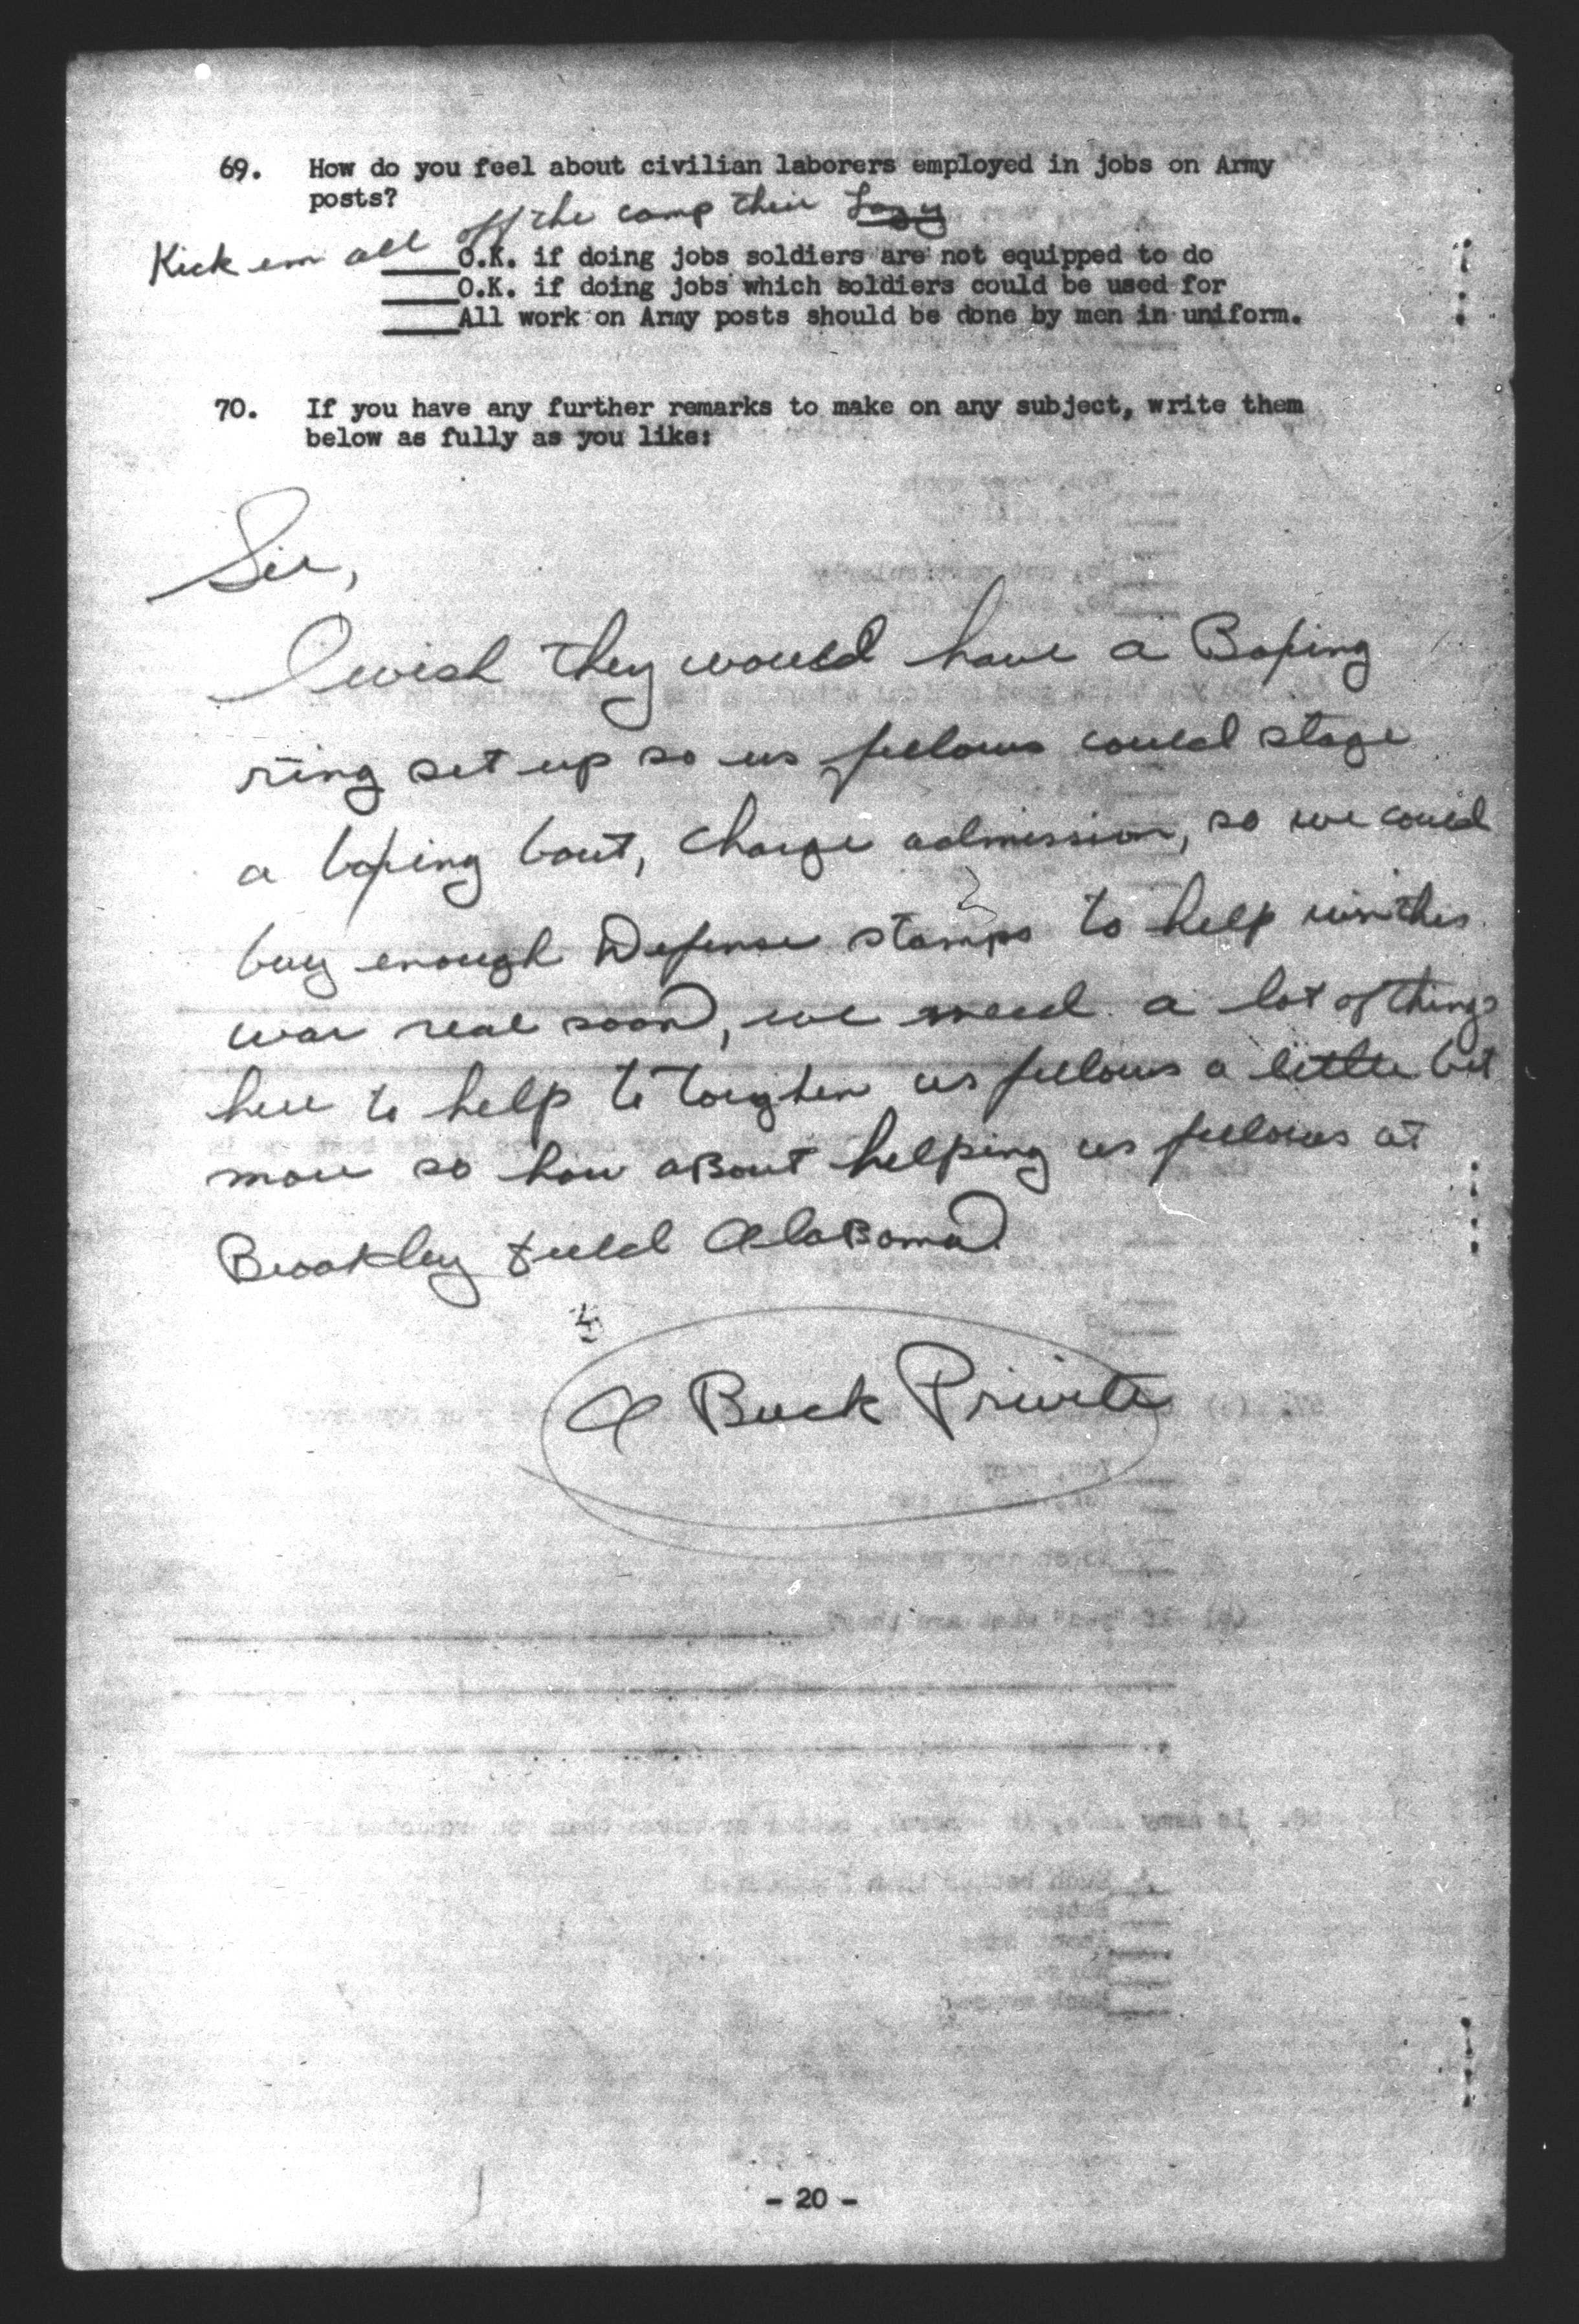 69. How do you feel about civilian laborers employed in jobs on Army
posts?
Kick em all off the camp their Lazy
____O.K. if doing jobs soldiers are not equipped to do
____O.K. if doing jobs which soldiers could be used for
____All work on Army posts should be done by men in uniform.
70. If you have any further remarks to make on any subject, write them
below as fully as you like:
Sir,
I wish they would have a Boxing
ring set up so us fellows could stage
a boxing bout, charge admission, so we could
buy enough Defense stamps to help win this
war real soon, we need a lot of things
here to help to toughen us fellows a little bit
more so how aBout helping us fellows at
Brookley field AlaBama
4
A Buck Private
- 20 -